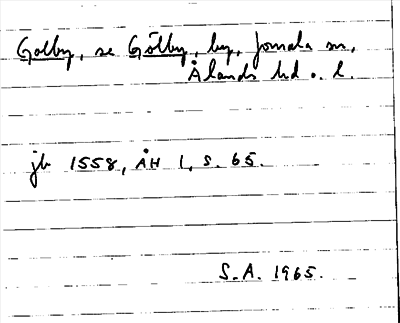 Golby, se Gölby, by, Jomala sn,
Ålands hd o. l.
jb 1558, ÅH 1, s. 65.
S.A. 1965.